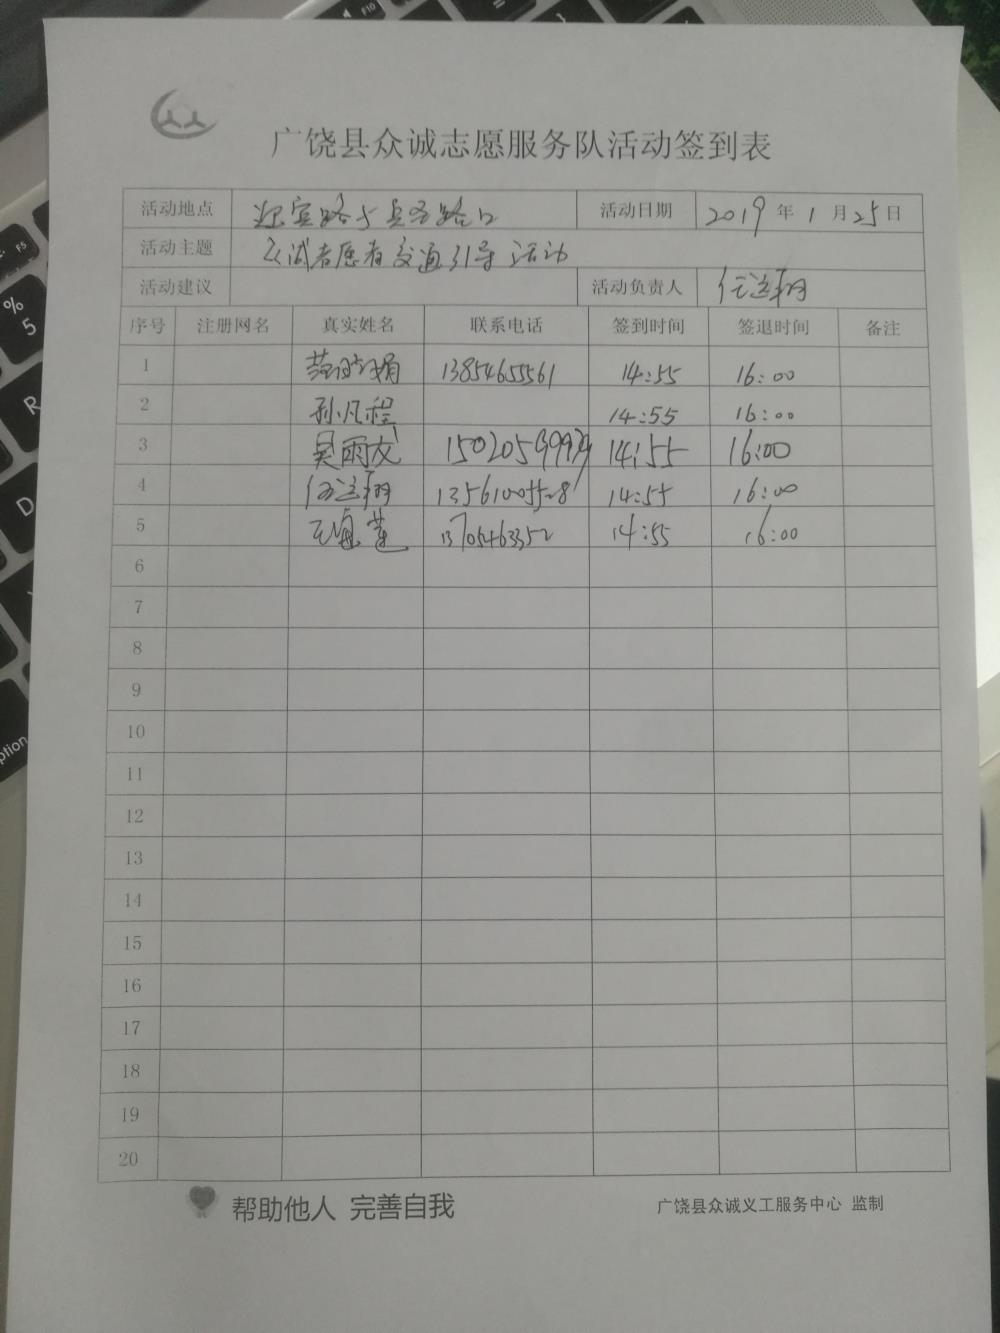 F10
F5
% 5
R
D
ption
广饶县众诚志愿服务队活动签到表
活动地点 迎宾路与 路口 活动日期 2019年1月25日
活动主题 众诚志愿者交通引导活动
活动建议 活动负责人 任兰翔
序号 注册网名 真实姓名 联系电话 签到时间 签退时间 备注
1 13854655561 14:55 16:00
2 孙凡程 14:55 16:00
3 吴雨成 14:55 16:00
4 任兰翔 14:55 16:00
5 王 莲 13705463352 14:55 16:00
6
7
8
9
10
11
12
13
14
15
16
17
18
19
20
帮助他人 完善自我
广饶县众诚义工服务中心 监制